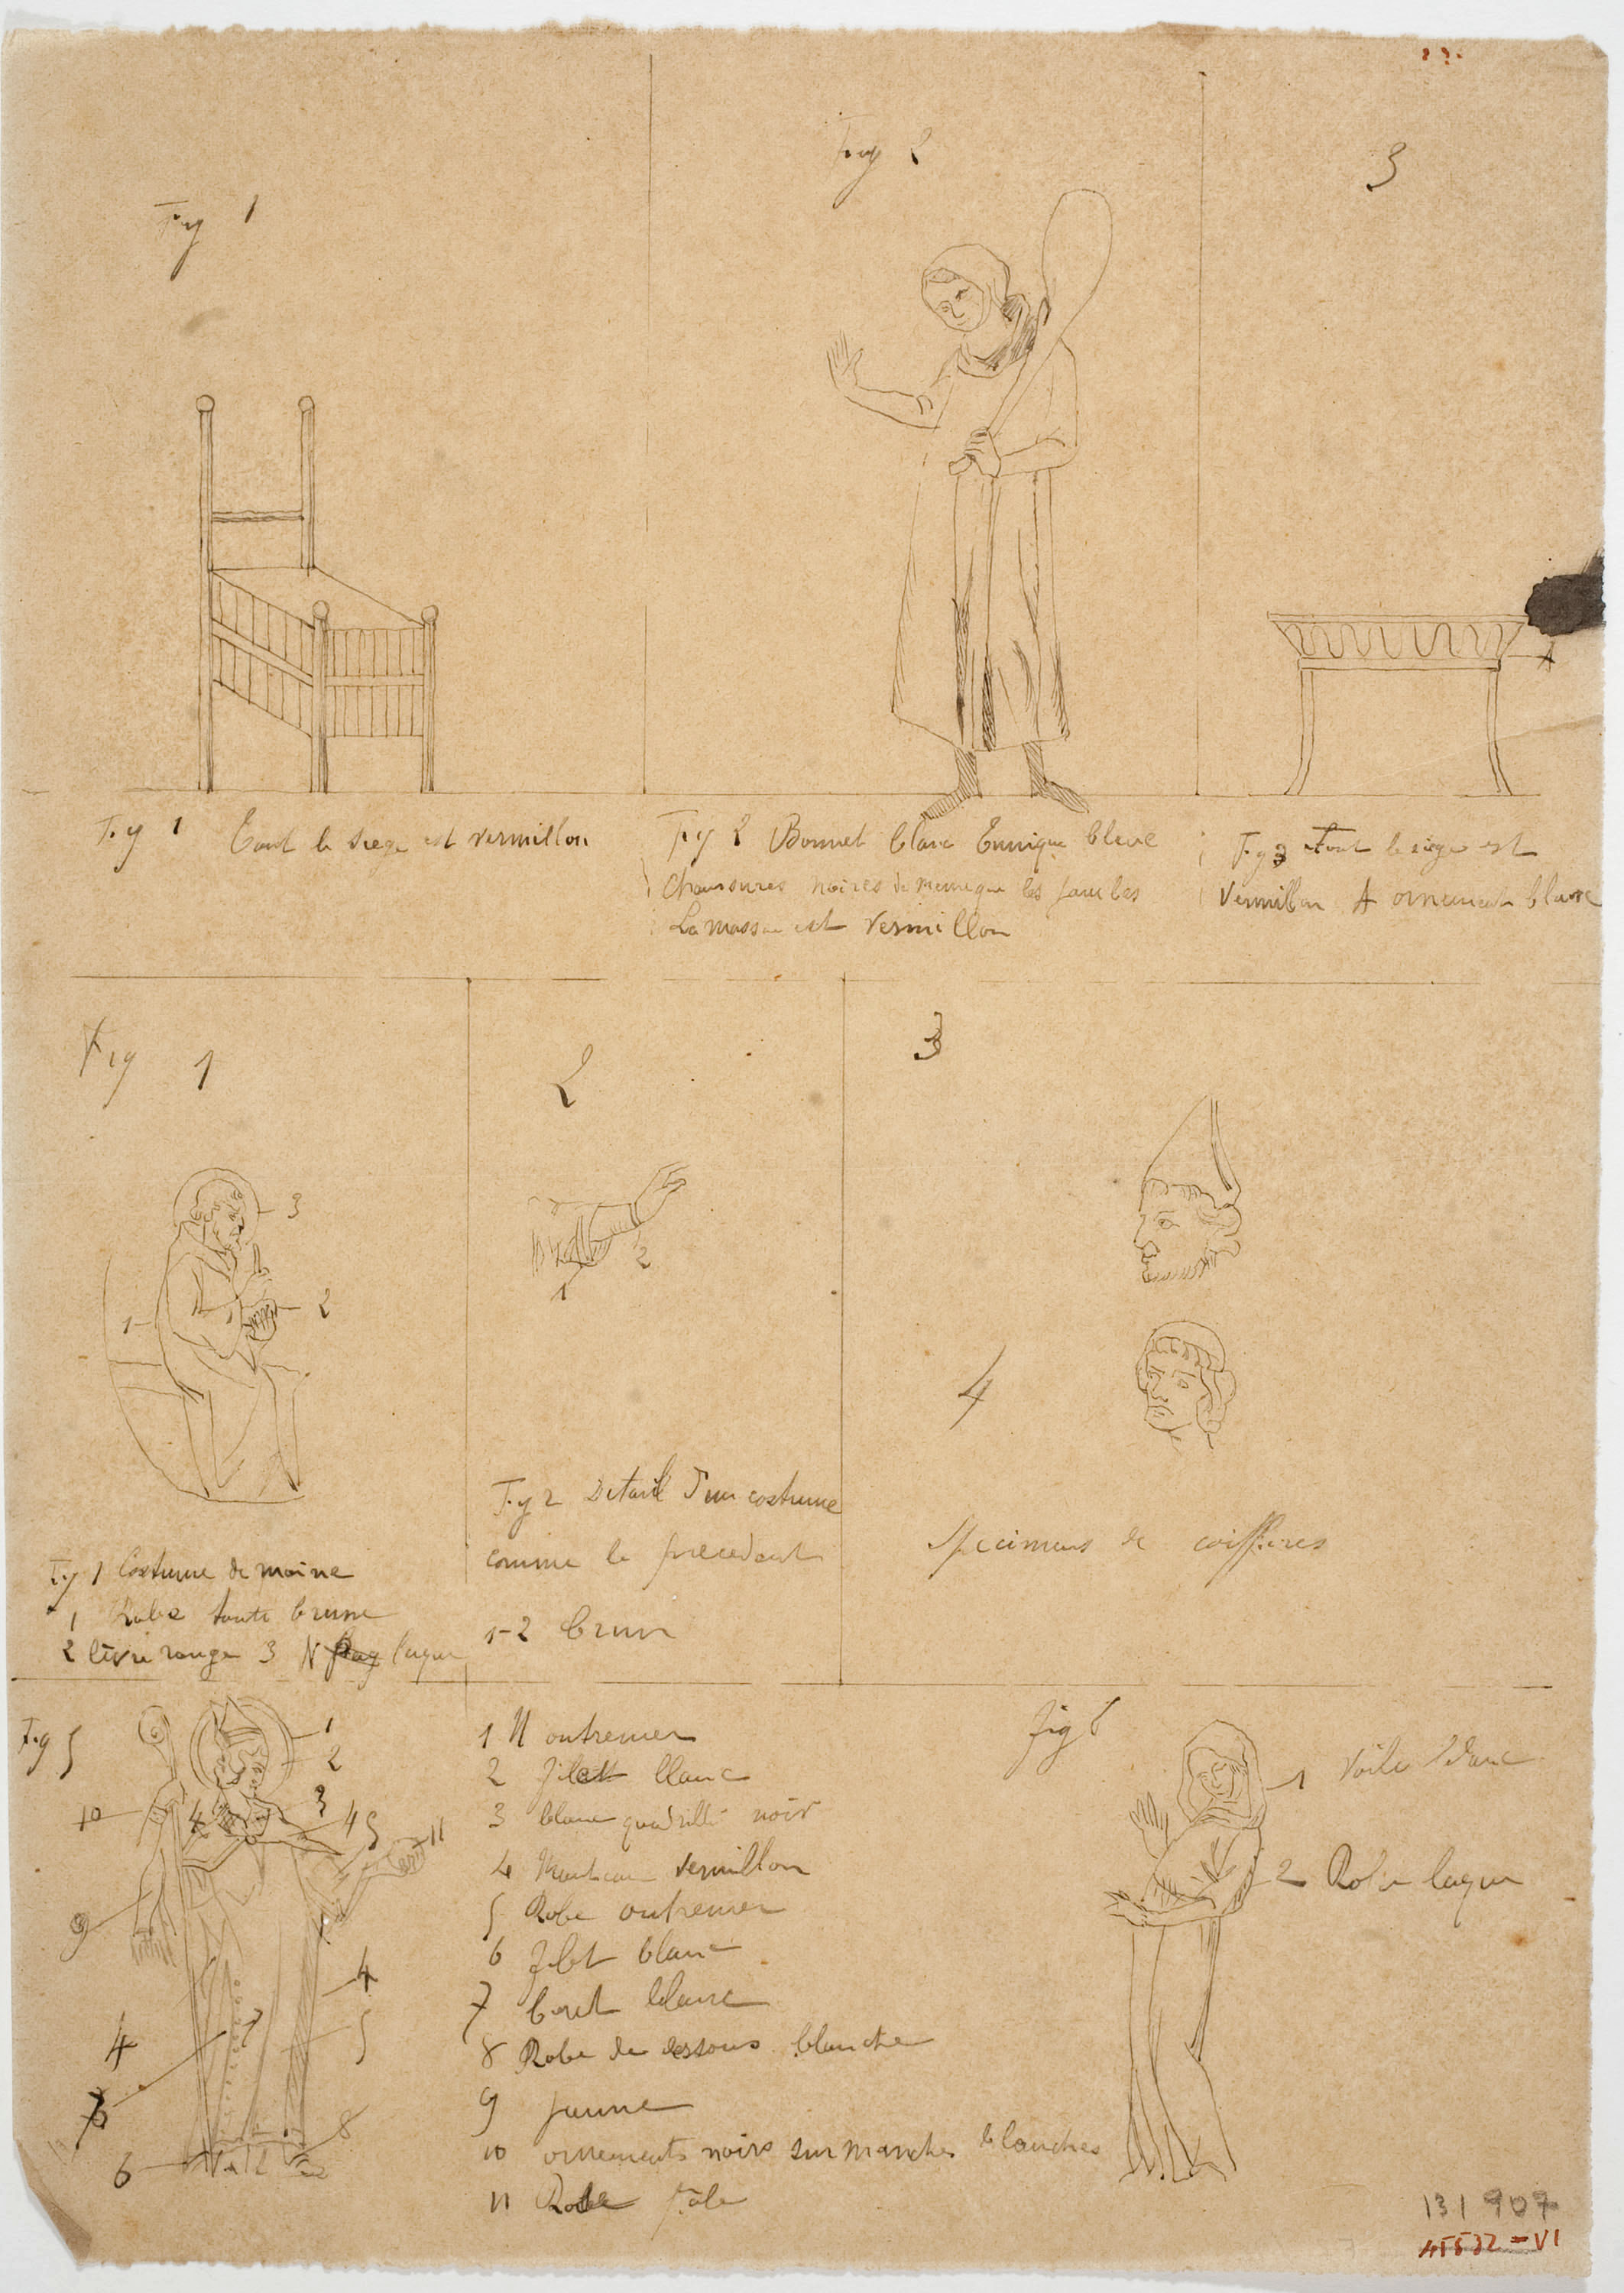 Fig 1
Fig 2
3
A
Fig 1 Tout le siege est vermillon
Fig 2 Bonnet blanc Tunique bleue
Chaussures noires de meme que les jambes
La massue est vermillon
Fig 3 Tout le siege est
vermillon A ornements blanc
Fig 1
2
3
3
2
1
1
2
4
Fig 1 Costume de moine
1 Robe toute brune
2 livre rouge 3 N laque
Fig 2 Detail d'un costume
comme le precedent
1-2 brun
Specimens de coiffures
Fig 5
1
2
3
4
4
5
10
11
9
4
5
4
7
6
8
1 N outremer
2 filet blanc
3 blanc quadrillé noir
4 Manteau vermillon
5 Robe outremer
6 filet blanc
7 blanc
8 Robe de dessous blanche
9 Jaune
10 ornements noirs sur manches blanches
11 pâle
fig 6
1 Voile blanc
2 Robe laque
131 907
45532=VI